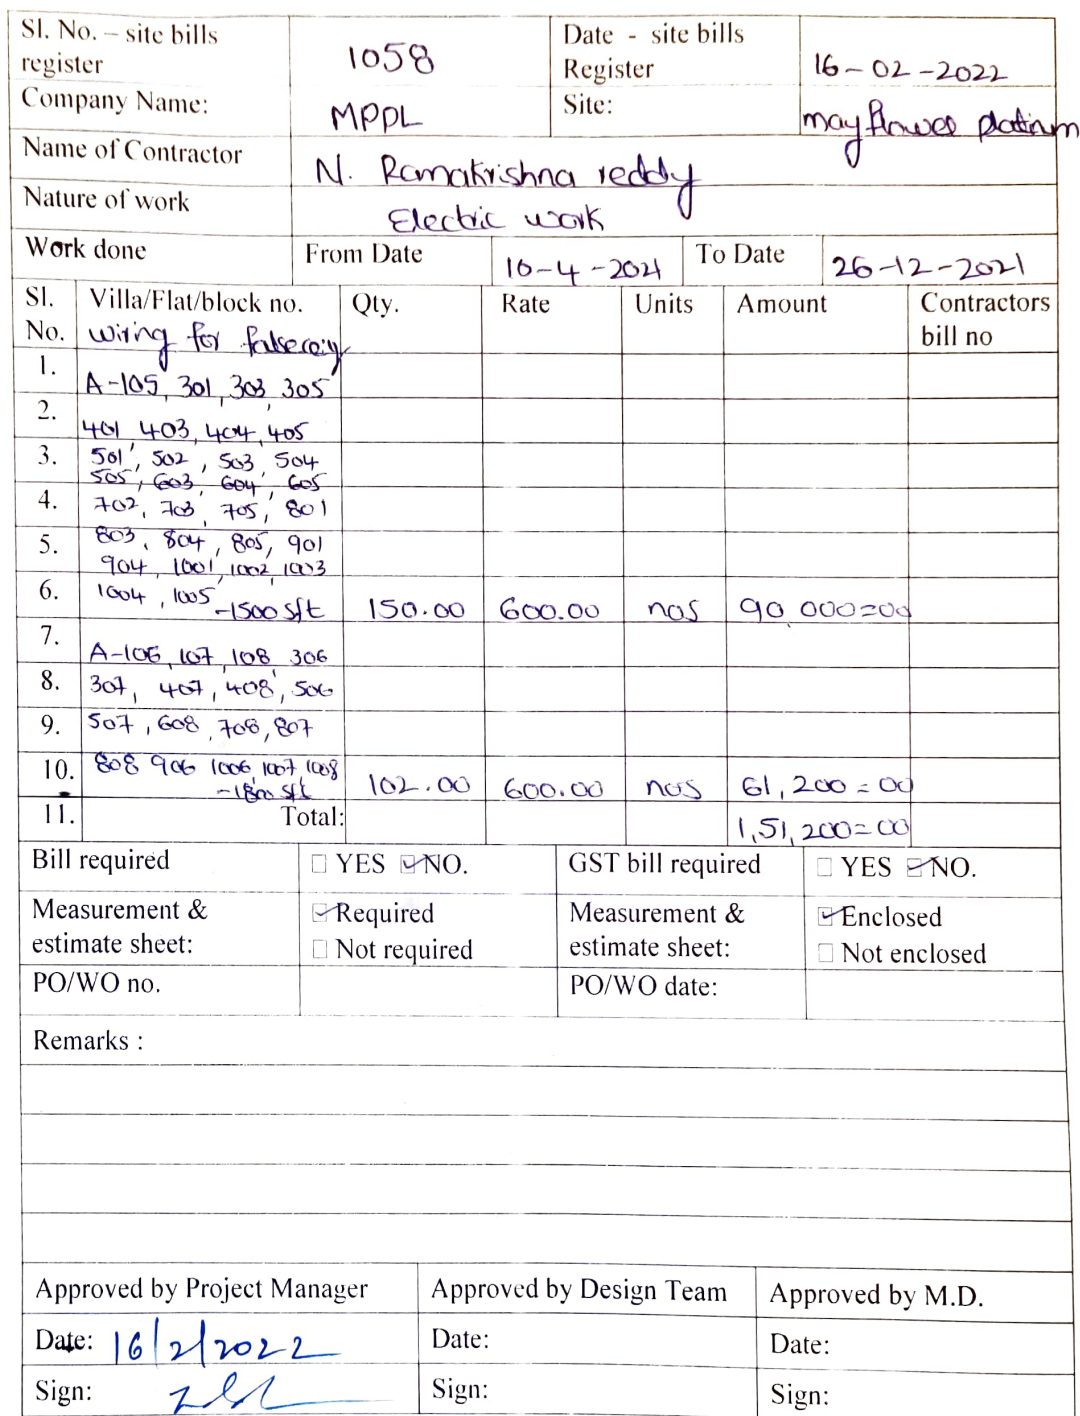 Sl. No. – site bills register 1058 Date - site bills Register 16-02-2022
Company Name: MPPL Site: mayflower platinum
Name of Contractor N. Ramakrishna reddy
Nature of work Electric work
Work done From Date 10-4-2021 To Date 26-12-2021
Sl. No. Villa/Flat/block no. Qty. Rate Units Amount Contractors bill no
wiring for
1. A-105, 301, 303, 305
2. 401, 403, 404, 405
3. 501, 502, 503, 504
505, 603, 604, 605
4. 702, 703, 705, 801
5. 803, 804, 805, 901
904, 1001, 1002, 1003
6. 1004, 1005 -1500 sft 150.00 600.00 nos 90,000=00
7. A-106, 107, 108, 306
8. 307, 407, 408, 506
9. 507, 608, 708, 807
10. 808 906 1006, 1007, 1008
-1800 sft 102.00 600.00 nos 61,200=00
11. Total: 1,51,200=00
Bill required YES NO. GST bill required YES NO.
Measurement & estimate sheet: Required Not required Measurement & estimate sheet: Enclosed Not enclosed
PO/WO no. PO/WO date:
Remarks :
Approved by Project Manager Approved by Design Team Approved by M.D.
Date: 16/2/2022 Date: Date:
Sign: Sign: Sign: